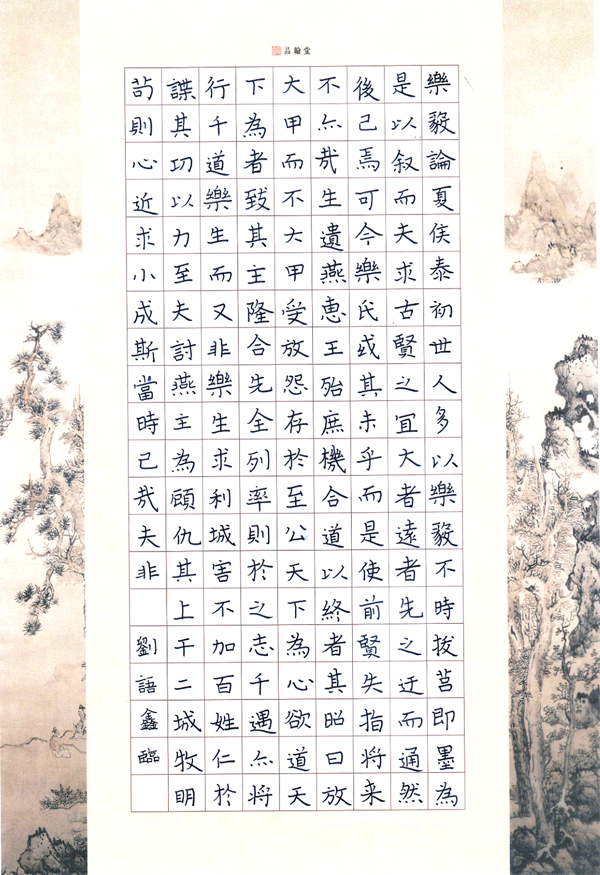 品翰堂
樂毅論夏侯泰初世人多以樂毅不時拔莒即墨為
是以叙而夫求古賢之宜大者遠者先之迂而通然
後已焉可今樂氏或其未乎而是使前賢失指将来
不亦哉生遺燕恵王殆庶機合道以終者其昭曰放
大甲而不大甲受放怨存於至公天下為心欲道天
下為者致其主隆合先全列率則於之志千遇亦将
行千道樂生而又非樂生求利城害不加百姓仁於
諜其功以力至夫討燕主為顧仇其上干二城牧明
茍則心近求小成斯當時已哉夫非
劉語鑫臨